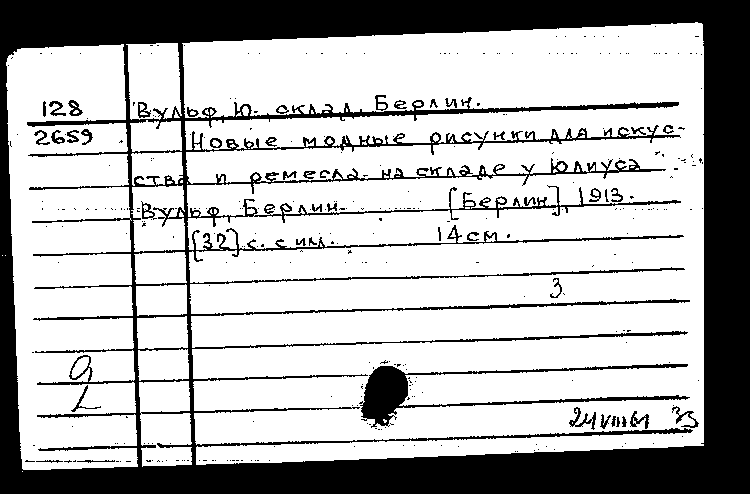 128 Вульф, Ю., склад, Берлин.
2659 Новые модные рисунки для искус-
ства и ремесла на складе у Юлиуса
Вульф, Берлин. [Берлин], 1913.
[32] с. с ил. 14 см.
3
24 VIII 61